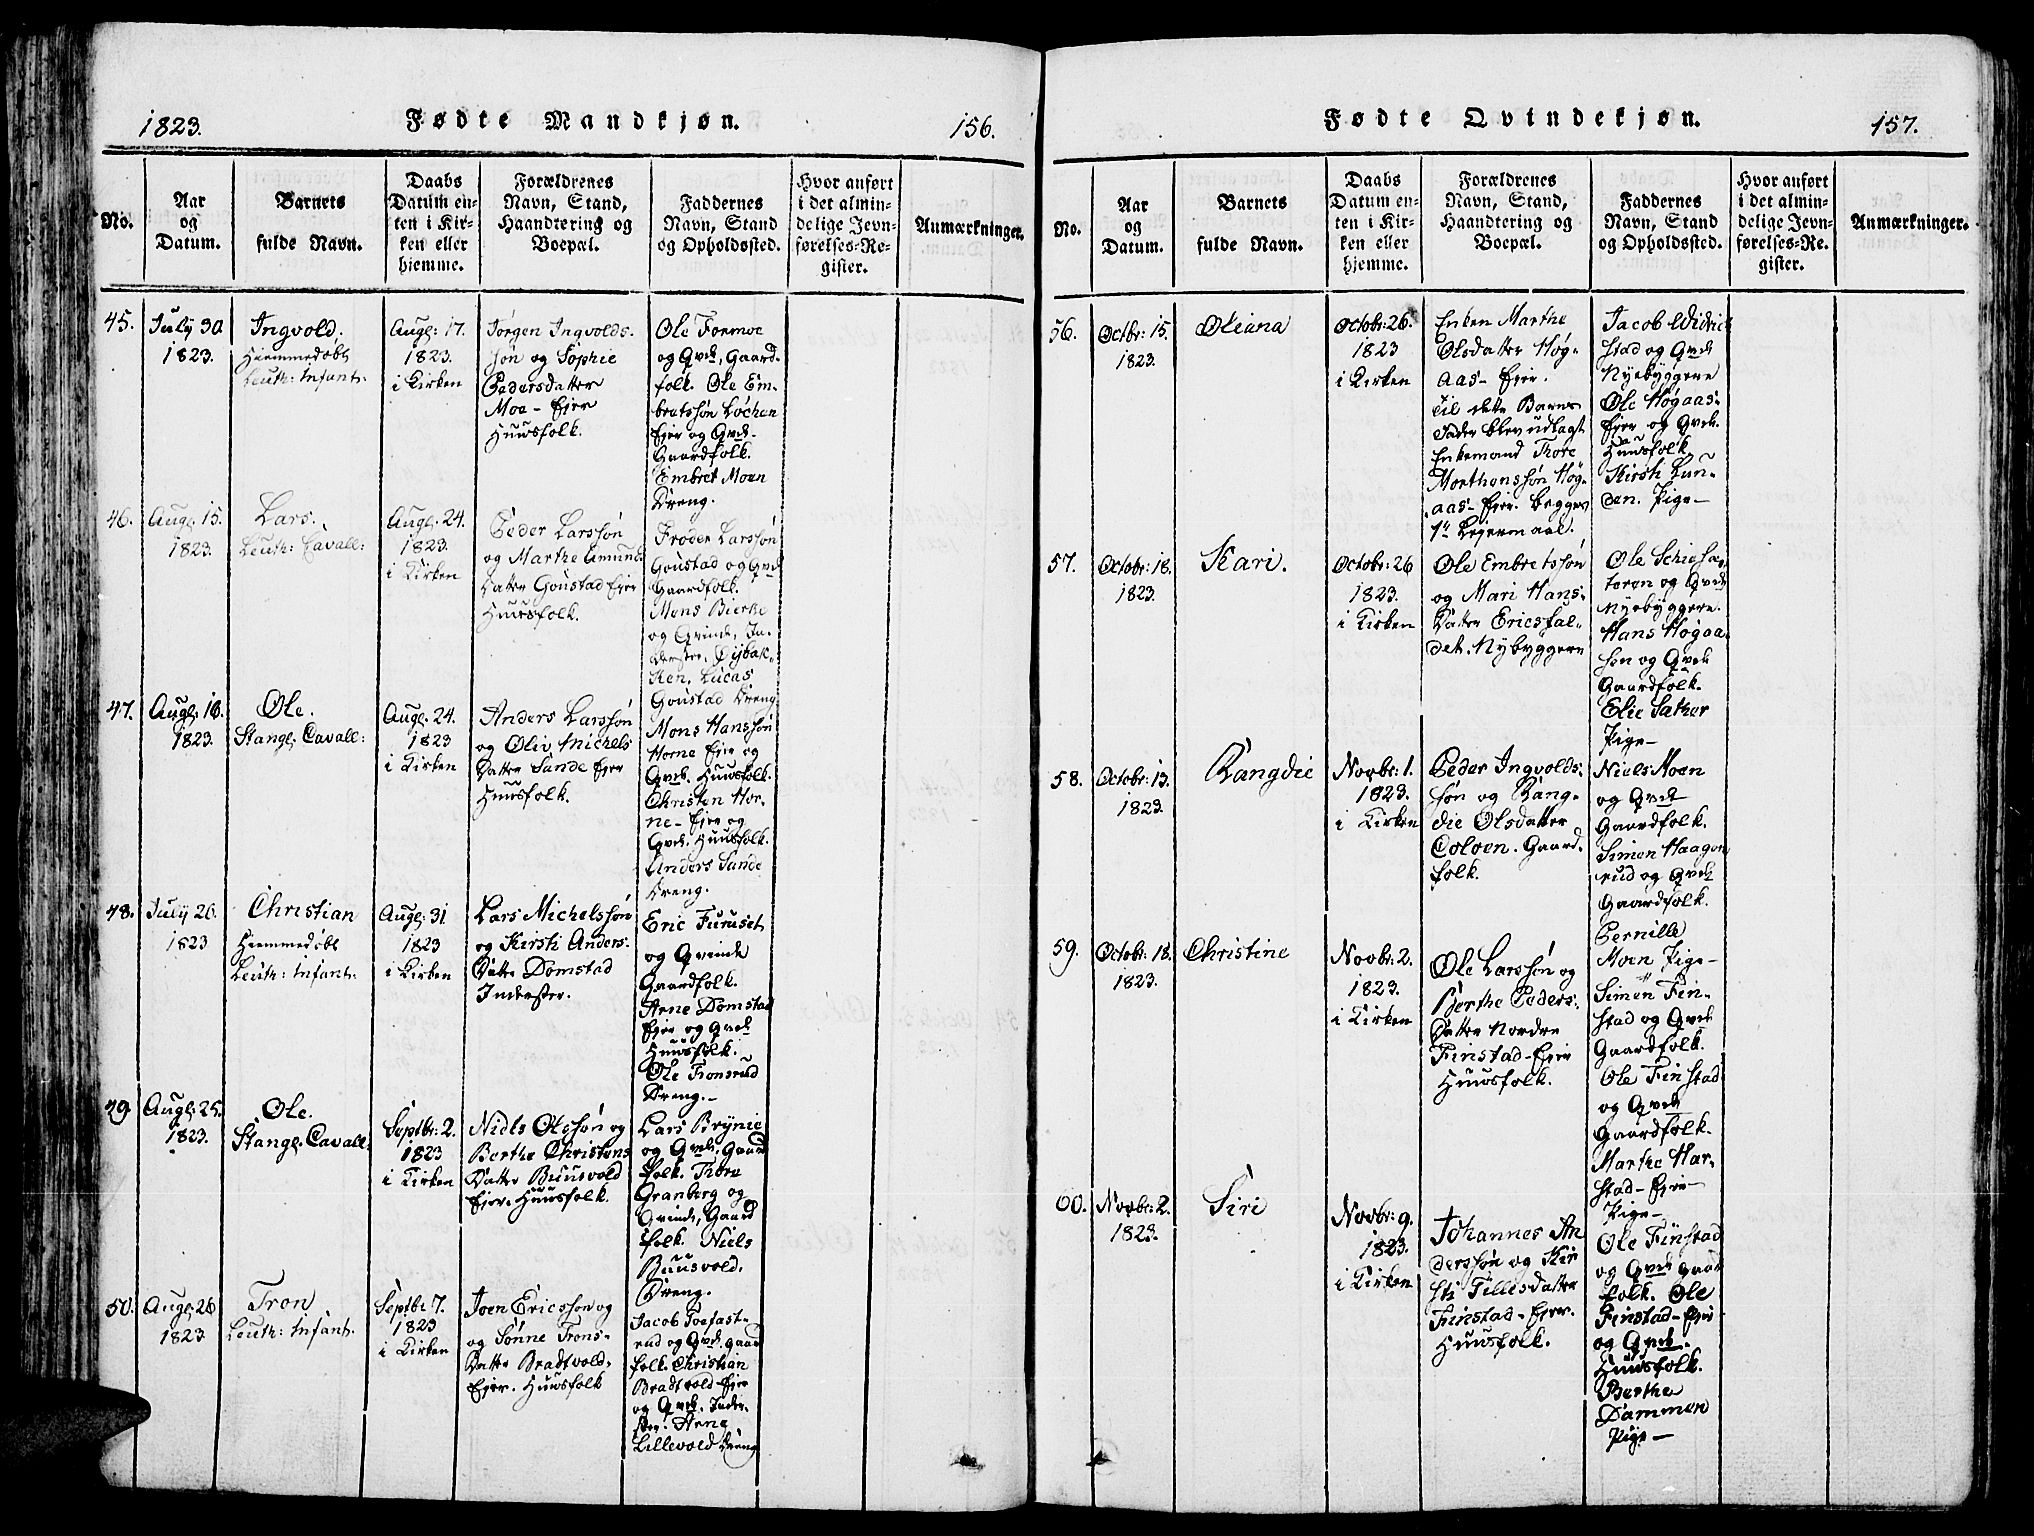 1823.
Fødte Mandkjøn.
156.
No.
Aar
og
Datum.
Barnets
fulde Navn.
Daabs
Datum en-
ten i Kir-
ken eller
hjemme.
Forældrenes
Navn, Stand,
Haandtering og
Boepæl.
Faddernes
Navn, Stand
og Opholdssted.
Hvor anført
i det almin-
delige Jevn-
førelses-Re-
gister.
Anmærkninger.
45.
July 30
1823.
Ingvold.
Hiemmedøbt
Leuth: Infant:
Augl: 17.
1823.
i Kirken
Jørgen Ingvolds-
søn og Sophie
Pedersdatter
Moe - Ejer
Huusfolk.
Ole Formoe
og Qvde, Gaard-
folk. Ole Em-
bretssøn Løchen
Ejer og Qvde-
Gaardfolk.
Embret Moen
Dreng.
46.
Augl: 15.
1823.
Lars.
Leuth: Cavall:
Augl: 24.
1823.
i Kirken
Peder Larssøn
og Marthe Amund-
Datter Goustad Ejer
Huusfolk.
Froder Larssøn
Goustad og Qvde
Gaardfolk.
Mons Bierke
og Qvinde, In-
derster. Dybak-
ken, Lucas
Goustad Dreng
47.
Augl: 18.
1823.
Ole.
Stangl: Cavall:
Augl: 24.
1823
i Kirken
Anders Larssøn
og Oliv Michels
Datter Sande Ejer
Huusfolk.
Mons Hanssøn
Horne Ejer og
Qvde. Huusfolk.
Christen Hor-
ne - Ejer og
Qvde. Huusfolk.
Anders Sande
Dreng.
48.
July 26.
1823
Christian
Hiemmedøbt
Leuth: Infant:
Augl: 31
1823
i Kirken
Lars Michelssøn
og Kirsti Anders-
Datter Domstad
Inderster.
Eric Furuset
og Qvinde
Gaardfolk.
Arne Domstad
Ejer og Qvde
Huusfolk.
Ole Tronsrud
Dreng.-
49
Augl: 25.
1823.
Ole.
Stangl: Cavall:
Septbr: 2.
1823
i Kirken
Niels Olssøn og
Berthe Christens
Datter Buusvold
Ejer. Huusfolk.
Lars Brynie
og Qvde, Gaard
folk. Thore
Granberg og
Qvinde, Gaard
folk. Niels
Buusvold.
Dreng.
50.
Augl: 26
1823
Tron
Leuth: Infant:
Septbr 7.
1823
i Kirken
Joen Ericssøn og
og Sønne Trons-
Datter Bradtvold.
Ejer. Huusfolk
Jacob Toefast-
rud og Qvde. gaard
folk. Christian
Bradtvold Ejer
og Qvde. Inder-
ster. Arne
Lillevold Dreng
Fødte Qvindekjøn.
157.
No.
Aar
og
Datum.
Barnets
fulde Navn.
Daabs
Datum en-
ten i Kir-
ken eller
hjemme.
Forældrenes
Navn, Stand,
Haandtering og
Boepæl.
Faddernes
Navn, Stand
og Opholdssted.
Hvor anført
i det almin-
delige Jevn-
førelses-Re-
gister.
Anmærkninger.
56.
Octbr: 15.
1823.
Oleana
Octobr: 26.
1823
i Kirken
Enken Marthe
Olsdatter Høg-
aas - Ejer.
Til dette Barns
Fader blev udlagt
Enkemand Thore
Morthenssøn Høg-
aas - Ejer. begges
1te Lejermaal.
Jacob Didrich
stad og Qvde
Nyebyggere
Ole Høgaas-
Ejer og Qvde.
Huusfolk
Kirsti Lun-
den. Pige-
57.
Octobr: 18.
1823.
Kari.
Octobr: 26
1823.
i Kirken
Ole Embretssøn
og Mari Hans-
Datter Ericsfal-
det. Nybyggere
Ole Schiesæ-
teren og Qvde
Nyebyggere.
Hans Høgaa-
sen og Qvde
Gaardfolk.
Elie Sather
Pige-
58.
Octobr: 13.
1823.
Rangdie
Novbr: 1.
1823.
i Kirken
Peder Ingvolds-
søn og Rang-
die Olsdatter
Coloen. Gaard-
folk.
Niels Moen
og Qvde
Gaardfolk.
Simen Haagen
rud og Qvde
Gaardfolk.
Pernille
Moen Pige-
59.
Octobr: 18.
1823.
Christine
Novbr: 2.
1823.
i Kirken
Ole Larssøn og
Berthe Peders-
Datter Nordre
Finstad - Ejer
Huusfolk.
Simen Fin-
stad og Qvde
Gaardfolk.
Ole Finstad
og Qvde
Gaardfolk.
Marthe Har-
stad - Ejer-
Pige-
60.
Novbr: 2.
1823.
Siri
Novbr: 9.
1823.
i Kirken
Johannes An
derssøn og Kir
sti Tillesdatter
Finstad - Ejer.
Huusfolk.
Ole Finstad
og Qvde gaard
folk. Ole
Finstad - Ejer
og Qvde.
Huusfolk.
Berthe
Dammen
Pige -